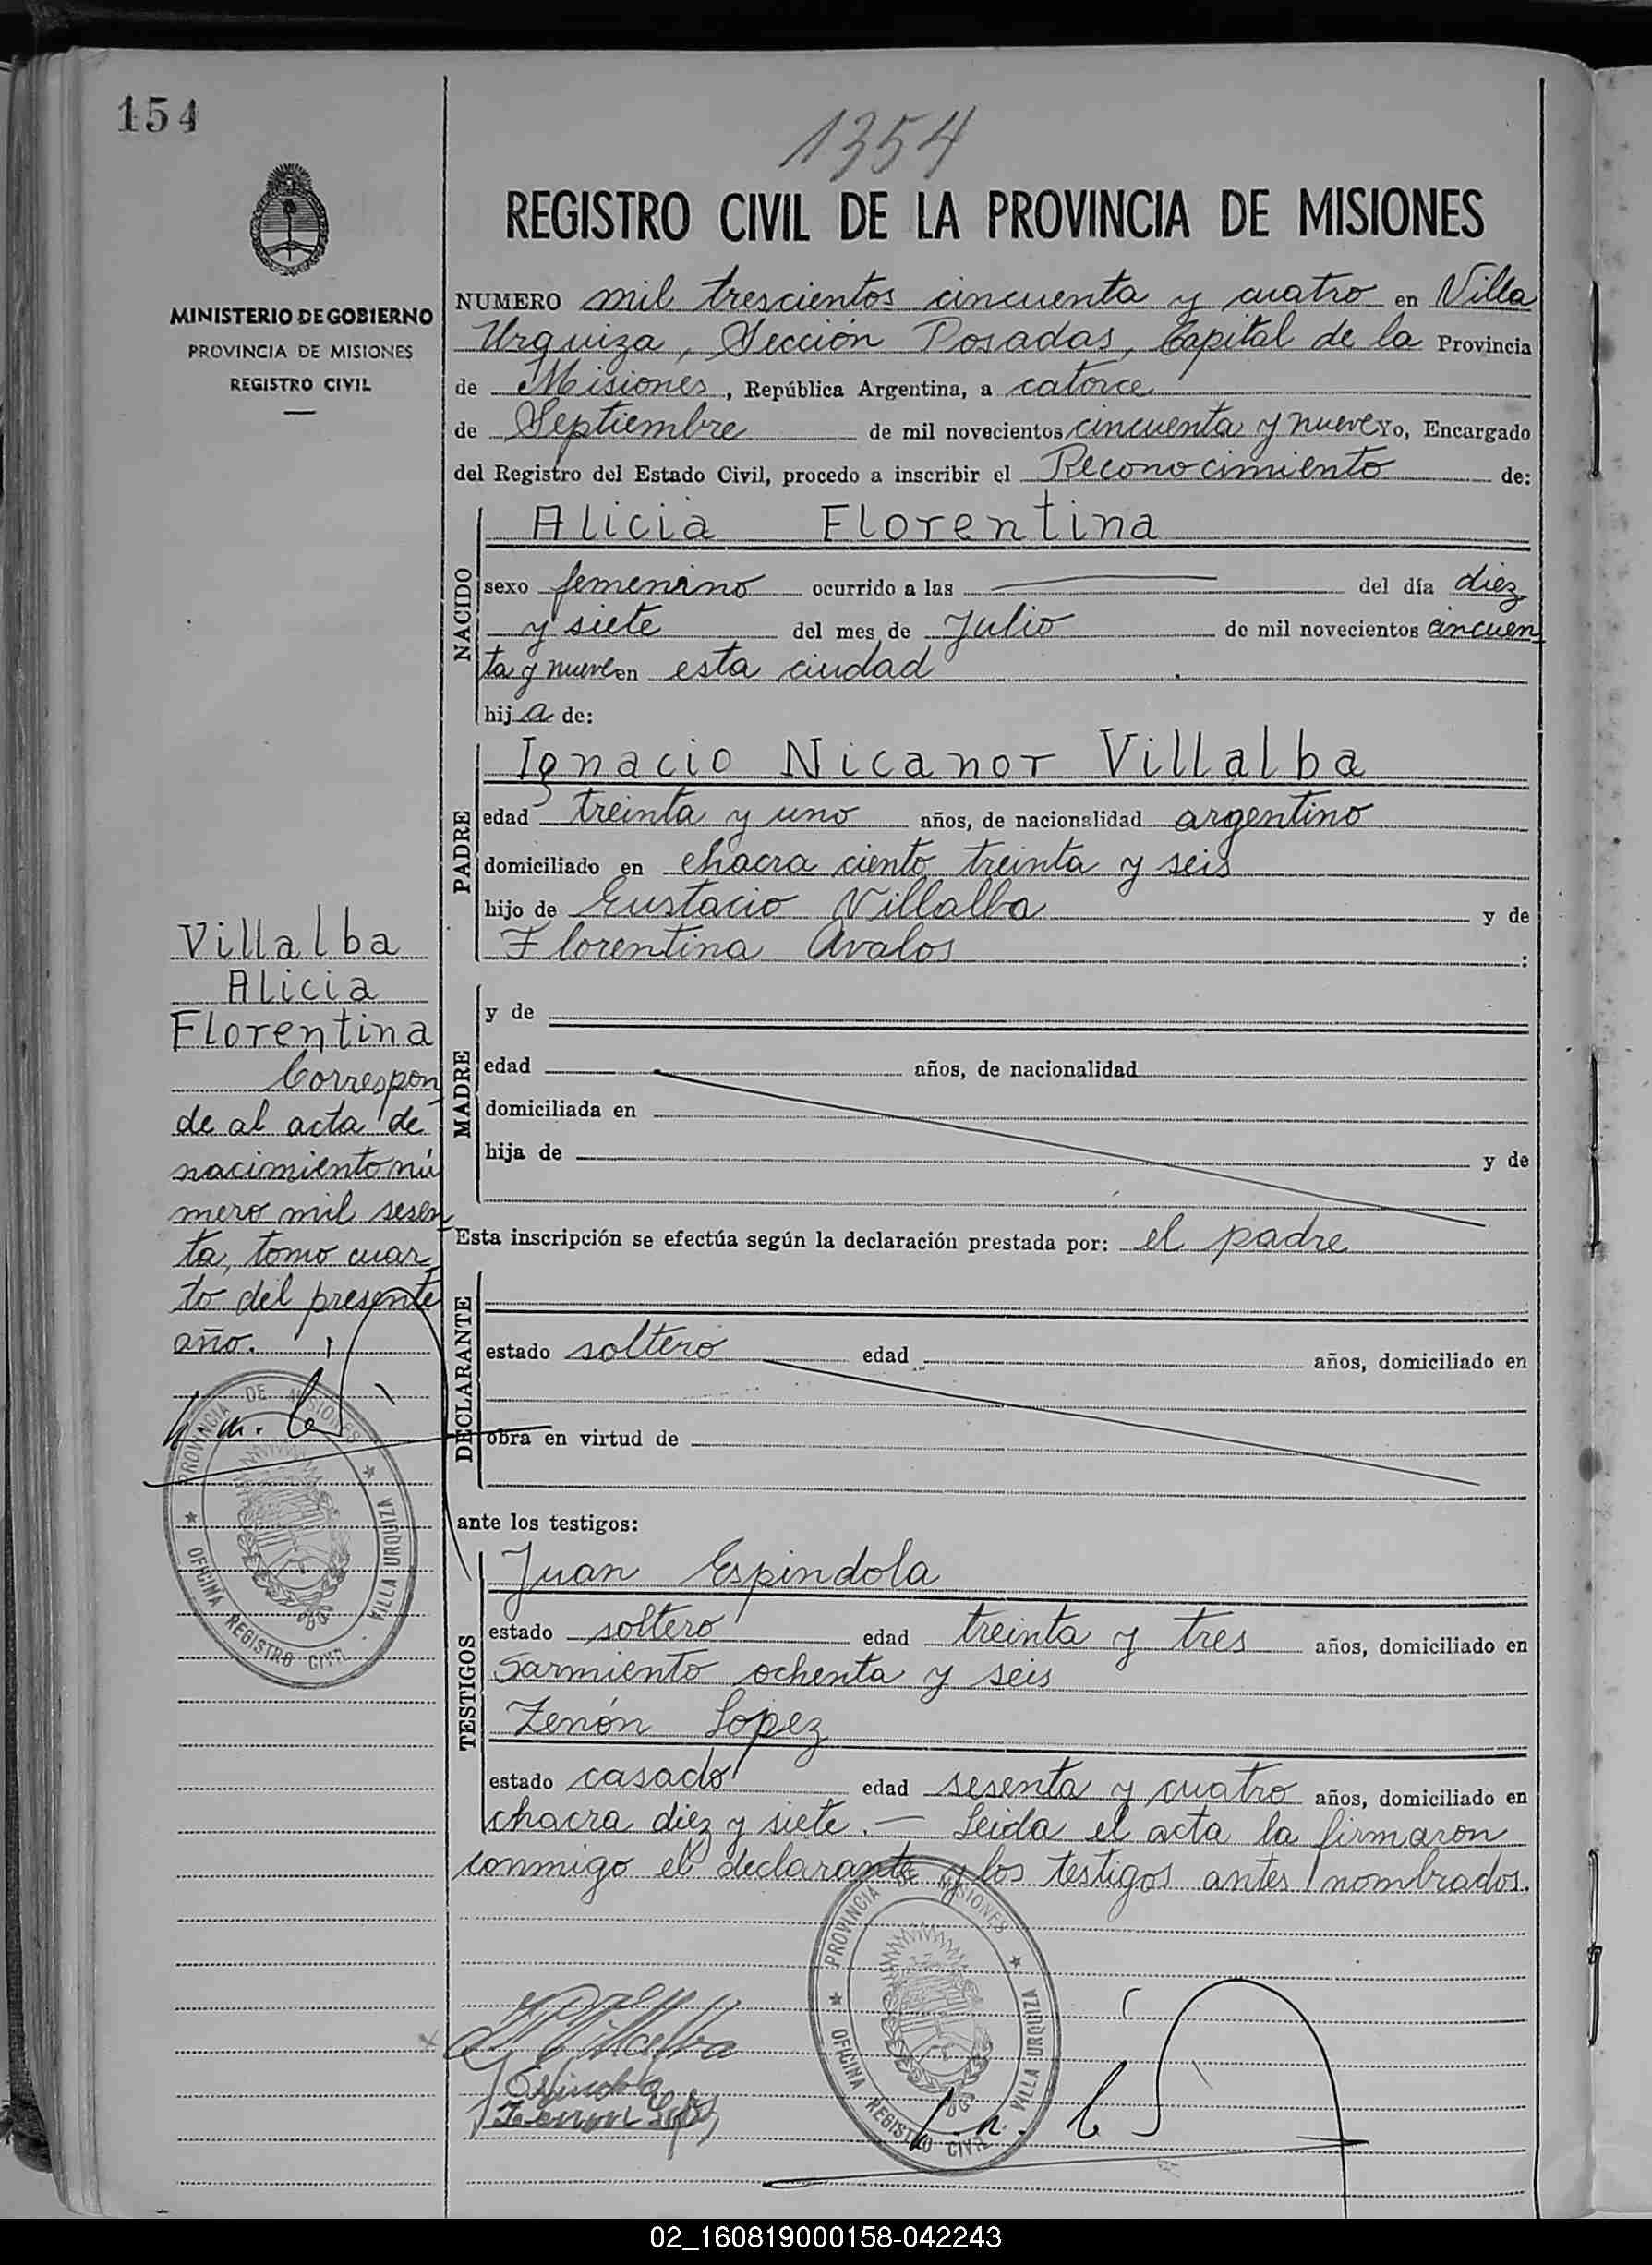 154
1354
MINISTERIO DE GOBIERNO
PROVINCIA DE MISIONES
REGISTRO CIVIL
REGISTRO CIVIL DE LA PROVINCIA DE MISIONES
NUMERO mil trescientos cincuenta y cuatro en Villa
Urquiza, Sección Posadas, Capital de la Provincia
de Misiones, República Argentina, a catorce
de Septiembre de mil novecientos cincuenta y nueve Yo, Encargado
del Registro del Estado Civil, procedo a inscribir el Reconocimiento de:
NACIDO
Alicia Florentina
sexo femenino ocurrido a las del día diez
y siete del mes de Julio de mil novecientos cincuen
ta y nueve en esta ciudad
hija de:
PADRE
Ignacio Nicanor Villalba
edad treinta y uno años, de nacionalidad argentino
domiciliado en chacra ciento treinta y seis
hijo de Eustacio Villalba y de
Florentina Avalos :
Villalba
Alicia
Florentina
Correspon
de al acta de
nacimiento nú
mero mil sesen
ta, tomo cuar
to del presente
año.
PROVINCIA DE MISIONES
OFICINA REGISTRO CIVIL - VILLA URQUIZA
MADRE
y de
edad años, de nacionalidad
domiciliada en
hija de y de
Esta inscripción se efectúa según la declaración prestada por: el padre
DECLARANTE
estado soltero edad años, domiciliado en
obra en virtud de
ante los testigos:
TESTIGOS
Juan Espindola
estado soltero edad treinta y tres años, domiciliado en
Sarmiento ochenta y seis
Zenón Lopez
estado casado edad sesenta y cuatro años, domiciliado en
chacra diez y siete.— Leida el acta la firmaron
conmigo el declarante y los testigos antes nombrados.
PROVINCIA DE MISIONES
OFICINA REGISTRO CIVIL VILLA URQUIZA
Villalba
J Espindola
Zenon Lopez
02_160819000158-042243